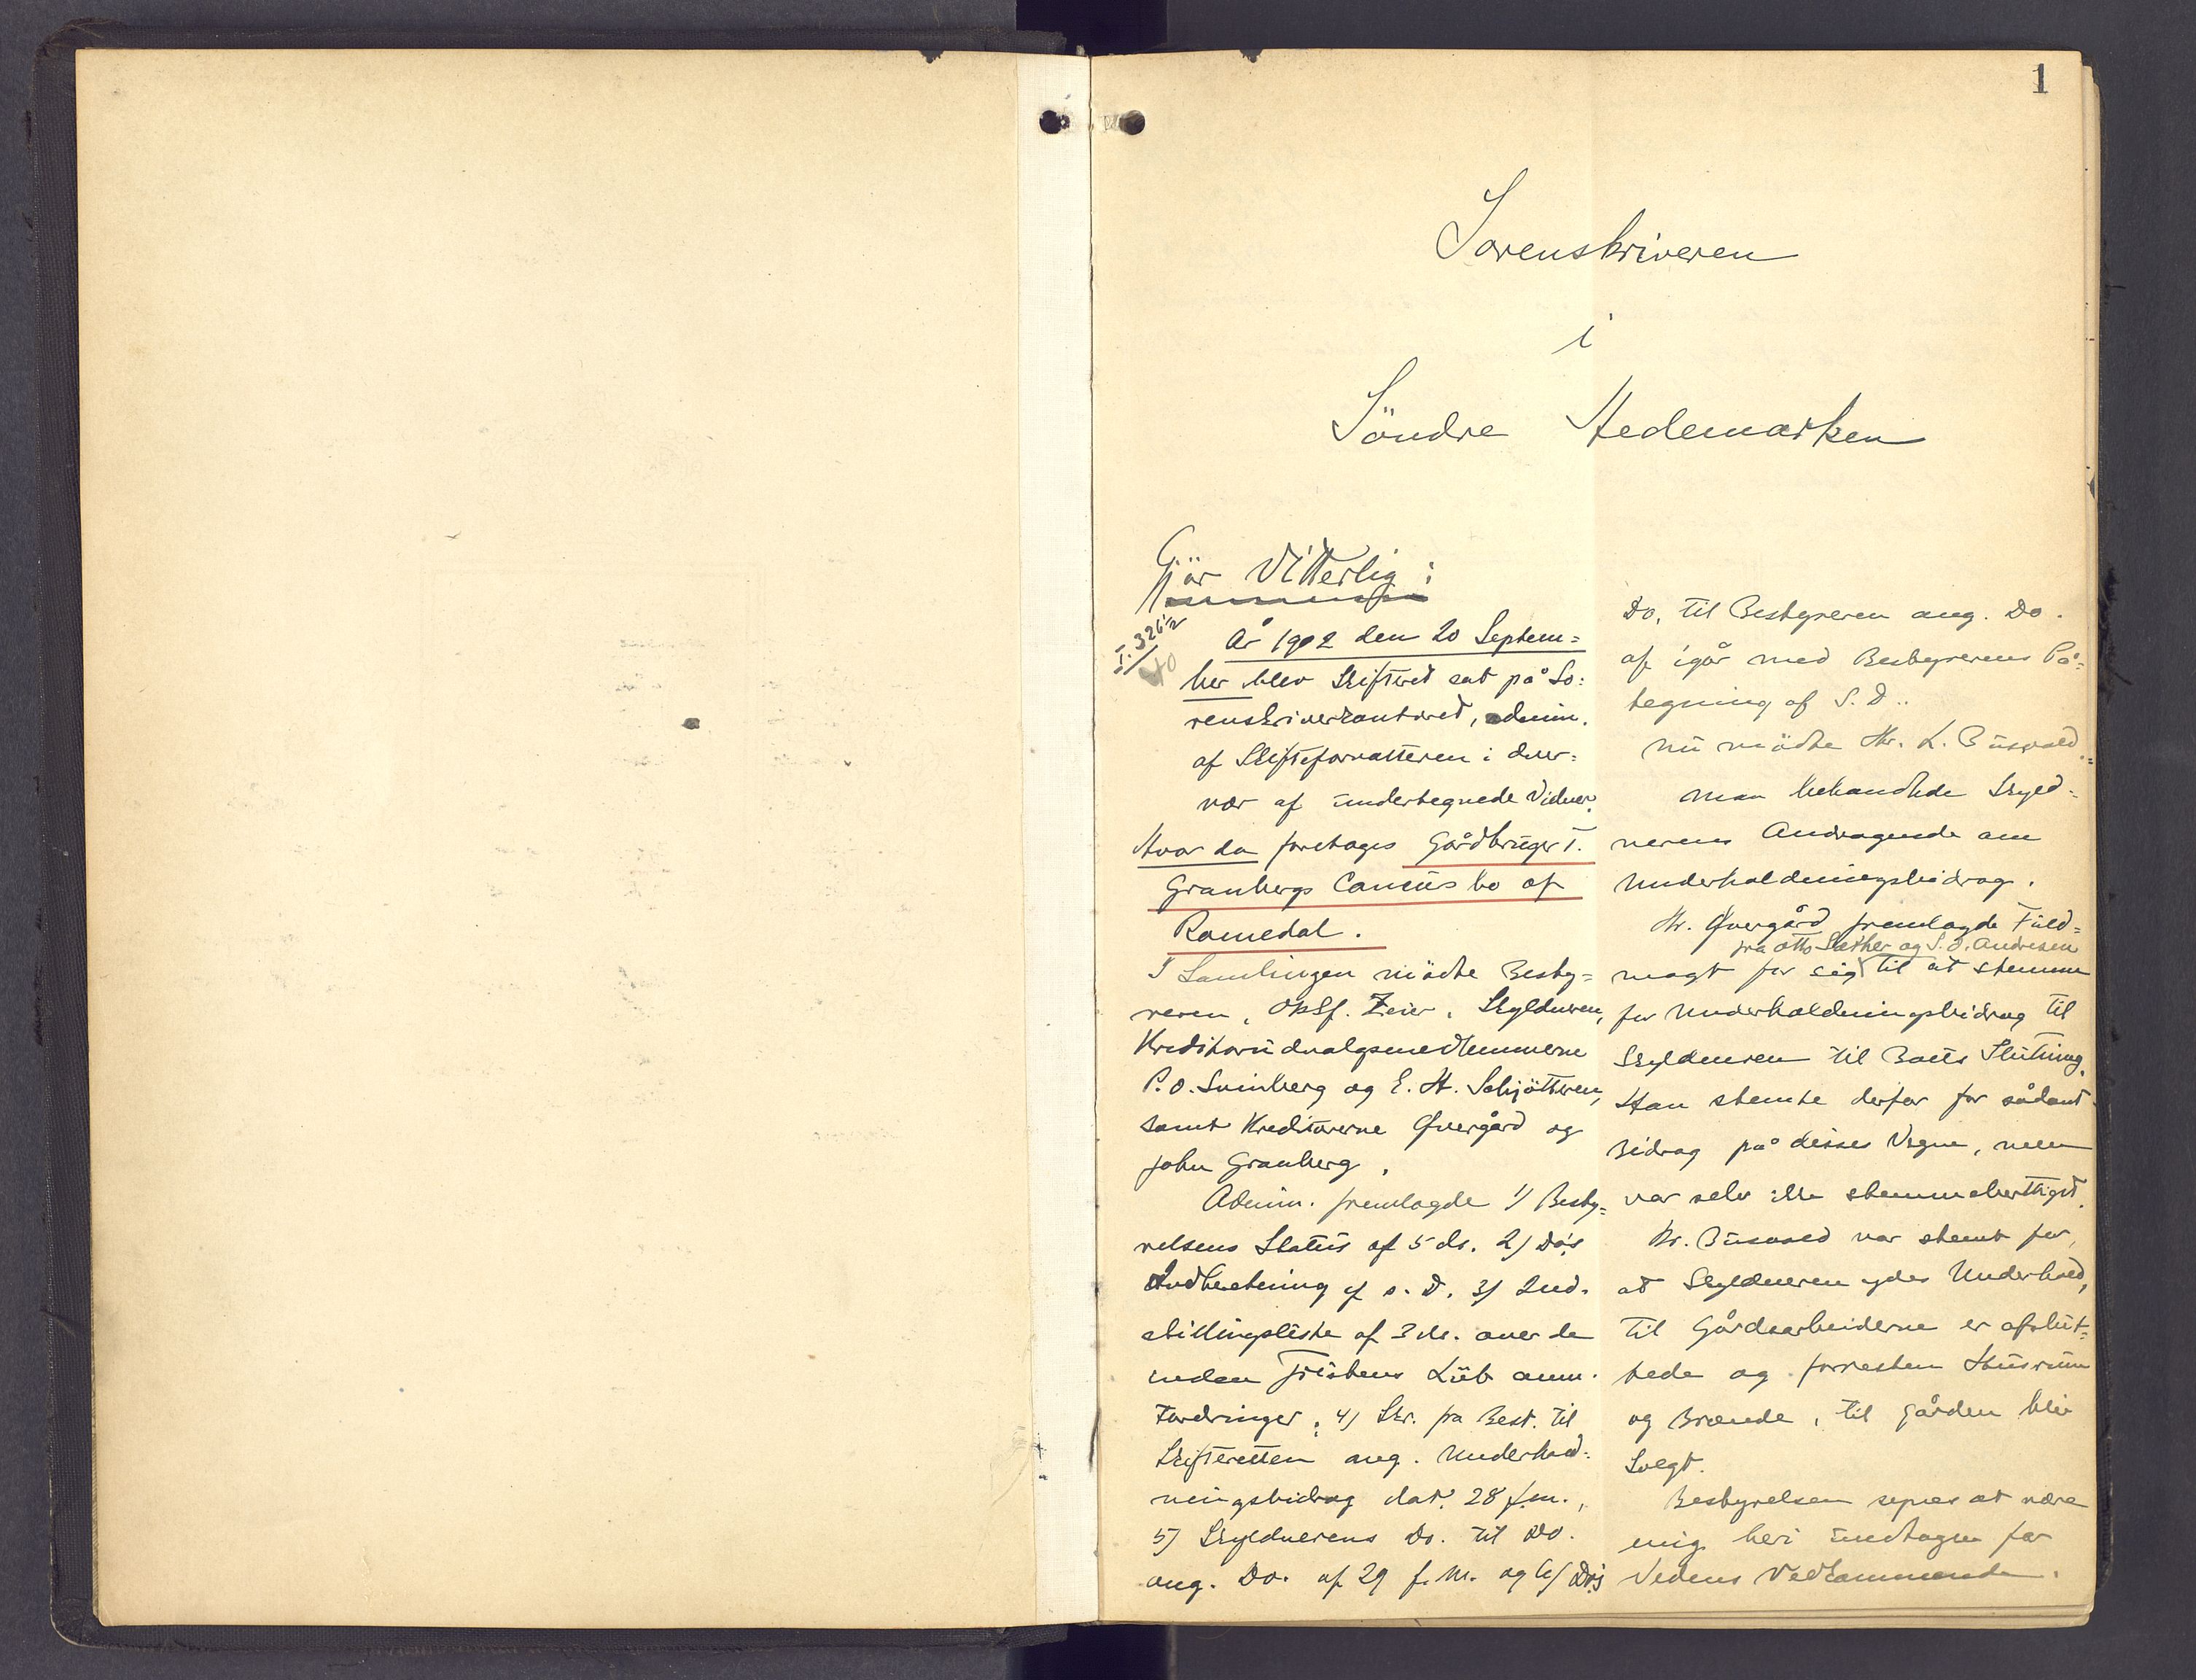 1
Sorenskriveren
i
Söndre Hedemarken
Gjör Vitterlig:
I. 326 1/2
År 1902 den 20 Septem=
ber blev Skifteret sat på So=
renskriverkontoret, admin.
af Skifteforvalteren i Over=
vær af undertegnede Vidner.
Hvor da foretoges Gårdbruger T.
Granbergs Concursbo af
Romedal.
I Samlingen mödte Besty=
reren, Oksf. Zeier, Skyldneren,
Kreditorudvalgsmedlemmerne
P. O. Svinberg og E. H. Schjötteren,
samt Kreditorerne Qvergård og
John Granberg.
Admin. fremlagde 1/ Besty=
relsens Status af 5 ds. 2/ Do's
Indberetning af s. D. 3/ Ind-
stillingsliste af 3 ds. over de
inden Fristens Löb anm.
Fordringer, 4/ Skr. fra Best. til
Skifteretten ang. Underhold=
ningsbidrag dat. 28 f.m.,
5/ Skyldnerens Do. til Do.
ang. Do. af 29 f. M. og 6/ Do's
Do. til Bestyreren ang. Do.
af igår med Bestyrerens På=
tegning af S. D..
Nu mödte Hr. L. Busvold.=
Man behandlede Skyld=
nerens Andragende om
Underholdningsbidrag.
Hr. Qvergård fremlagde Fuld=
fra Otto Sæther og S. O. Andresen
magt for sig til at stemme
for Underholdningsbidrag til
Skyldneren til Boets Slutning.
Han stemte derfor for sådant
Bidrag på disses Vegne, men
var selv ikke stemmeberettiget.
Hr. Busvold var stemt for,
at Skyldneren ydes Underhold,
til Gårdsarbeiderne er afslut=
tede og forresten Husrum
og Brænde, til Gården blir
Solgt.
Bestyrelsen synes at være
enig heri undtagen for
Vedens Vedkommende.